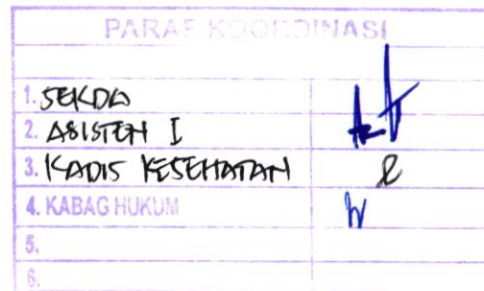 PARAF KOORDINASI
1. SEKDA
2. ASISTEN I
3. KADIS KESEHATAN
4. KABAG HUKUM
5.
6.